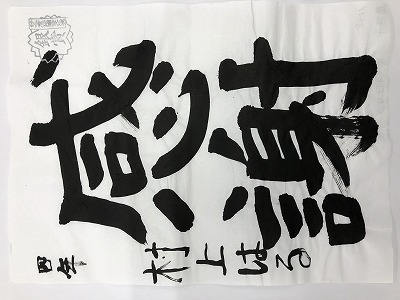 感謝
四年 村上はる